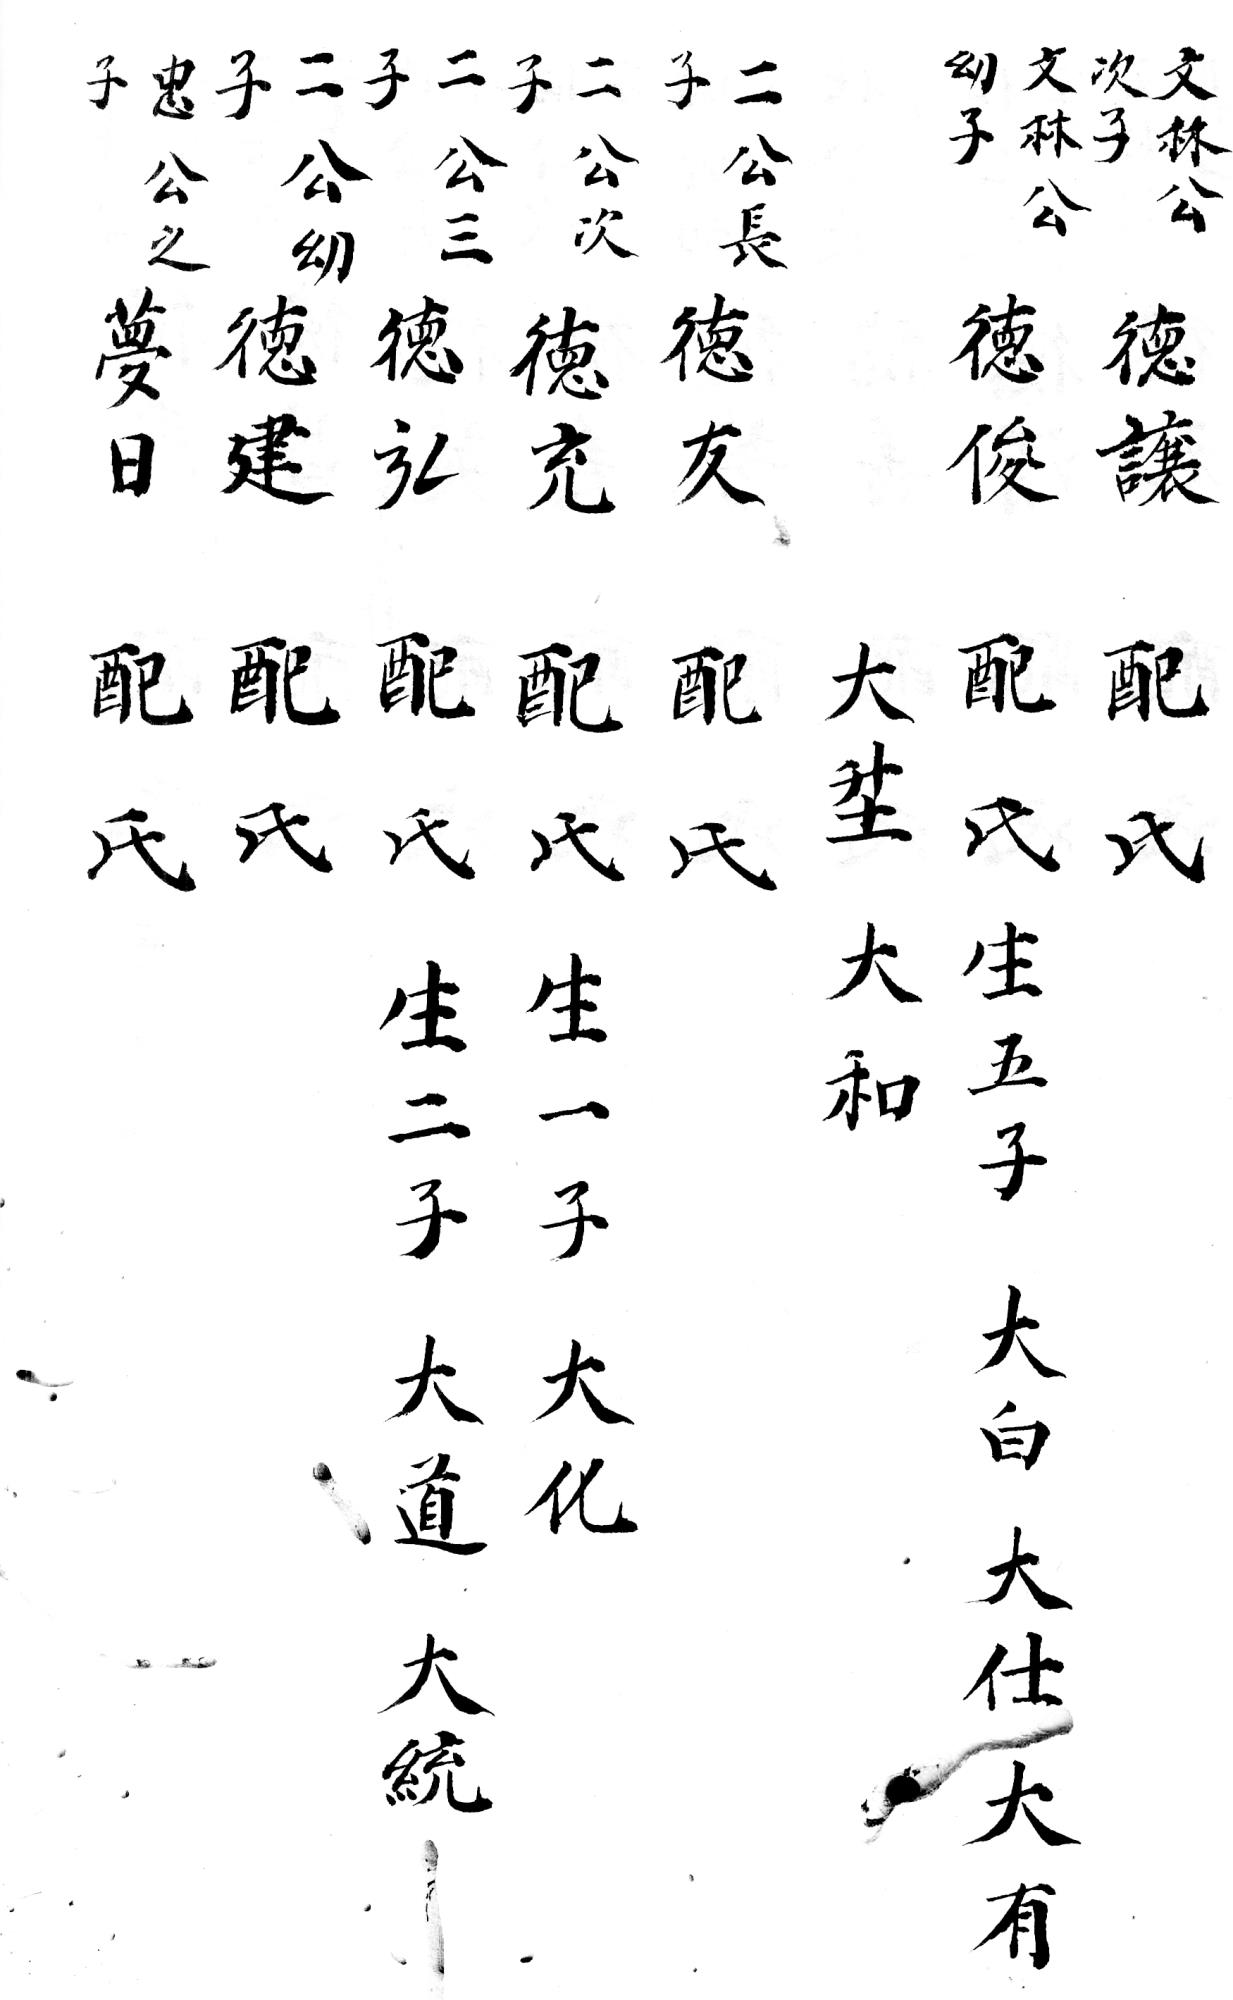 文林公次子 德讓 配 氏
文林公幼子 德俊 配 氏 生五子 大白 大仕 大有
大 大和
二公長子 德友 配 氏
二公次子 德充 配 氏 生一子 大化
二公三子 德弘 配 氏 生二子 大道 大統
二公幼子 德建 配 氏
忠公之子 夢日 配 氏